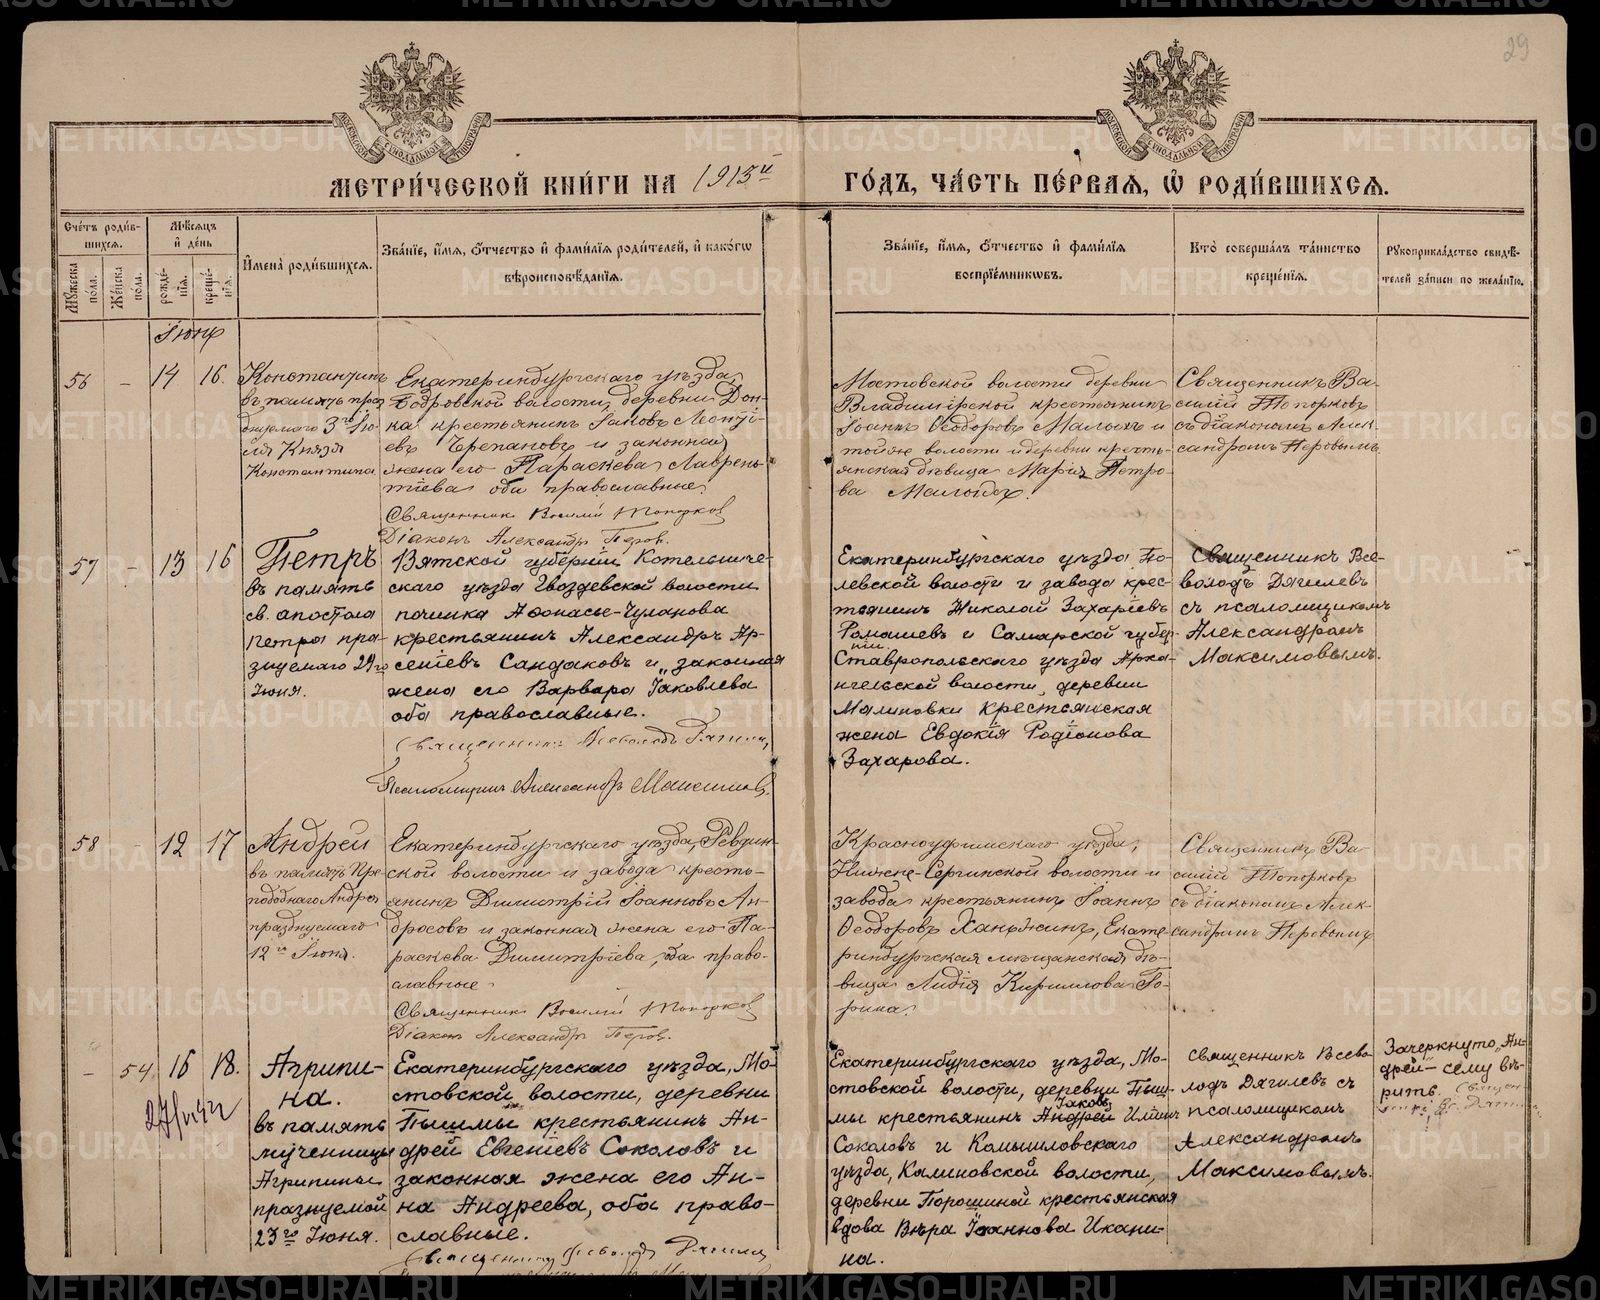 29
МОСКОВСКОЙ СѴНОДАЛЬНОЙ ТИПОГРАФІИ
МОСКОВСКОЙ СѴНОДАЛЬНОЙ ТИПОГРАФІИ
МЕТРИ́ЧЕСКОЙ КНИ́ГИ НА 1913й
ГО́ДЪ, ЧА́СТЬ ПЕ́РВАЯ, Ѡ҆ РОДИ́ВШИХСЯ.
Сче́тъ роди́в-
шихся.
Мꙋ́жеска
по́ла.
Же́нска
по́ла.
Мѣ́сяцъ
и҆ де́нь
рожде́-
нїя.
креще́-
нїя.
И҆мена̀ роди́вшихся.
Зва́нїе, и҆́мя, ѻ҆́тчество и҆ фами́лїя роди́телей, и҆ како́гѡ
вѣроисповѣ́данїя.
Зва́нїе, и҆́мя, ѻ҆́тчество и҆ фами́лїя
воспрїе́мникѡвъ.
Кто̀ соверша́лъ та́инство
креще́нїя.
Рꙋкоприкла́дство свидѣ́-
телей за́писи по жела́нїю.
Іюнь
56
-
14
16.
Константинъ
въ память праз
днуемаго 3го Ію
ля Князя
Константина
Екатеринбургскаго уѣзда,
Бодровской волости, деревни Дон-
ка крестьянинъ Іаковъ Леонті-
евъ Черепановъ и законная
жена его Параскева Лаврень-
тіева оба православные.
Священникъ Василій Топорков
Діаконъ Александръ Перов.
Мостовской волости деревни
Владимірской крестьянинъ
Іоаннъ Ѳеодоровъ Малыхъ и
тойже волости и деревни кресть-
янская дѣвица Марія Петро-
ва Малыхъ.
Священникъ Ва-
силій Топорковъ
съ діакономъ Алек-
сандромъ Перовымъ.
57
-
13
16
Петръ
въ память
св. апостола
Петра пра-
знуемаго 29го
Іюня.
Вятской губерніи Котельниче-
скаго уѣзда Гвоздевской волости
починка Афонасье-Чуланова
крестьянинъ Александръ Ар-
сеніевъ Сандаковъ и законная
жена его Варвара Іаковлева
оба православные.
Священникъ Всеволодъ Дягилев
Псаломщикъ Александръ Максимов.
Екатеринбургскаго уѣзда По-
левской волости и завода крес-
тьянинъ Николай Захаріевъ
Ромашевъ и Самарской губер-
ніи
Ставропольскаго уѣзда Арха-
нгельской волости, деревни
Малиновки крестьянская
жена Евдокія Родіонова
Захарова.
Священникъ Все-
володъ Дягилевъ
съ псаломщикомъ
Александромъ
Максимовымъ.
58
-
12
17
Андрей
въ память Пре-
подобнаго Андрея
празднуемаго
12го Іюня.
Екатеринбургскаго уѣзда, Ревдин-
ской волости и завода кресть-
янинъ Димитрій Іоанновъ Ан-
дросовъ и законная жена его Па-
раскева Димитріева, оба право-
славные.
Священникъ Василій Топорков
Діаконъ Александръ Перов.
Красноуфимскаго уѣзда,
Нижне-Сергинской волости и
завода крестьянинъ Іоаннъ
Ѳеодоровъ Ханжинъ, Екате-
ринбургская мѣщанская дѣ-
вица Лидія Кириллова Го-
рина.
Священникъ Ва-
силій Топорковъ
съ діакономъ Алек-
сандромъ Перовымъ
-
54
16
18.
Агрипи-
на.
въ память
мученницы
Агрипины
празнуемой
23го Іюня.
Екатеринбургскаго уѣзда, Мо-
стовской волости, деревни
Пышмы крестьянинъ Ан-
дрей Евгеніевъ Соколовъ и
законная жена его Ан-
на Андреева, оба право-
славные.
Священникъ Всеволодъ Дягилев
Екатеринбургскаго уѣзда, Мо-
стовской волости, деревни Пыш-
Іаковъ
мы крестьянинъ Андрей
Соколовъ и Камышловскаго
уѣзда, Калиновской волости,
деревни Порошиной крестьянская
вдова Вѣра Іоаннова Икани-
на.
священникъ Всево
лодъ Дягилевъ съ
псаломщикомъ
Александромъ
Максимовымъ.
Зачеркнуто „Ан-
дрей“ - сему вѣ-
рить.
METRIKI.GASO-URAL.RU